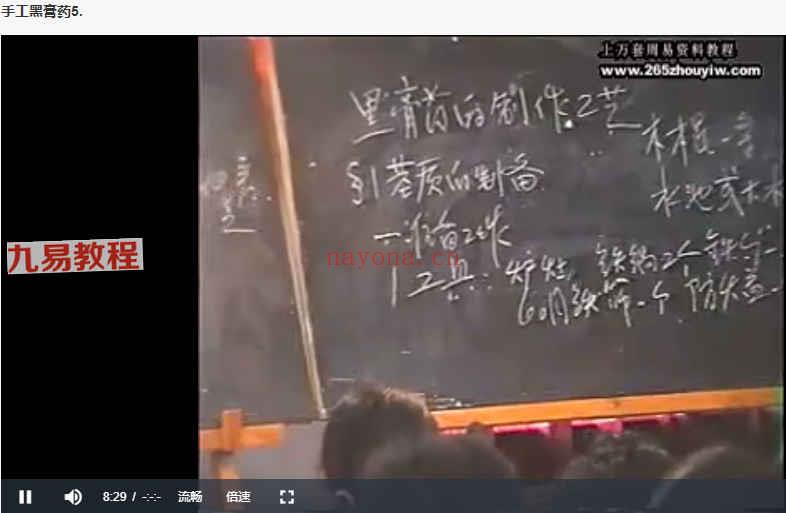 手工黑膏药5.
上万套周易资料教程
www.265zhouyiw.com
黑膏药的制作工艺
木棍一
§1基质的制备
水池或大水
一 准备工作
1工具: 炉灶, 铁锅2个 铁勺一
60目铁筛一个 防火盖
九易教程
nayona.cn
8:29 / -:-:- 流畅 倍速